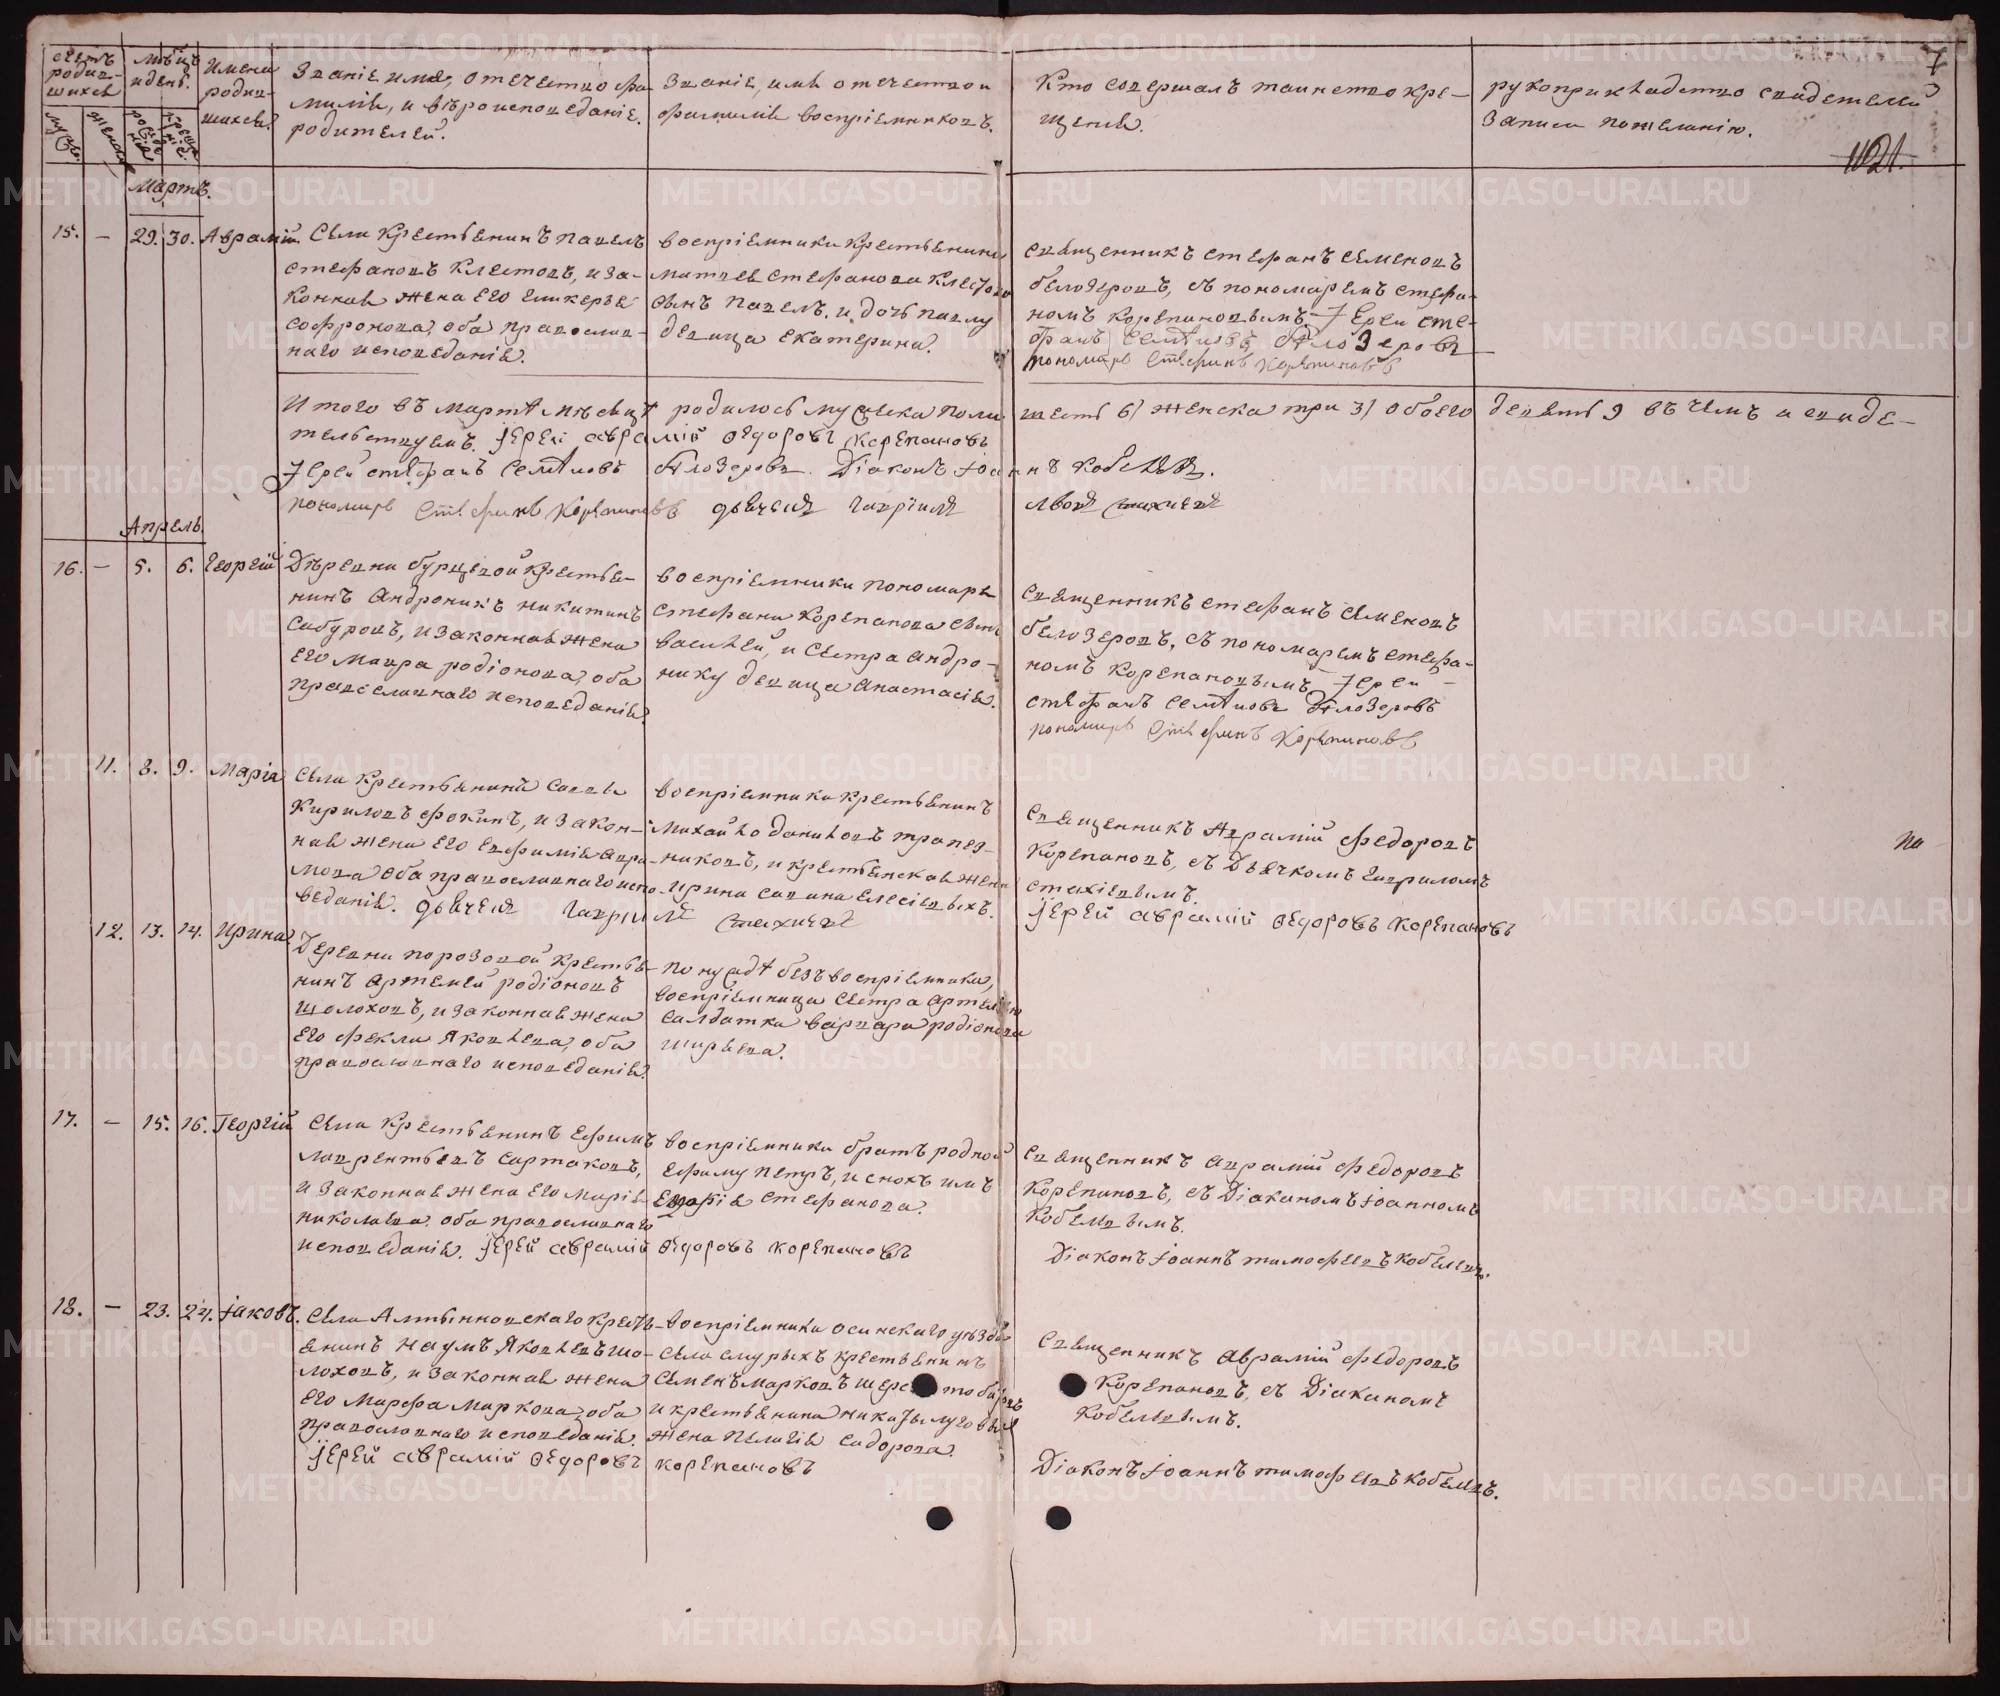 METRIKI.GASO-URAL.RU
7
1021.
Счетъ родив-шихся
Мѣсяцъ и день.
Имена родив-шихся.
Званіе имя, отечество фа-
милія, и вѣроисповеданіе.
родителей.
Званіе, имя отечество и
фамилія воспріемниковъ.
Кто совершалъ таинство кре-
щенія.
рукоприкладство свидетелей
записи пожеланію.
Мартъ.
15. — 29. 30. Аврамій
Села Крестьянинъ Павелъ
Стефановъ Клестовъ, и за-
конная жена его Гликерья
Софронова, оба православ-
наго исповеданія.
воспріемники крестьянина
Матвея Стефанова Клестова
сынъ Павелъ, и дочь Павлу
девица Екатерина.
Священникъ Стефанъ Семеновъ
белозеровъ, съ пономаремъ Стефа-
номъ Корепановымъ Іерей Сте-
фанъ Семеновъ Бѣлозеровъ
пономарь Стефанъ Корепановъ
Итого въ Мартѣ месяцѣ родилось мужеска пола шесть 6) женска три 3) обоего девять 9 въ чемъ и свиде-
тельствуемъ. Іерей Аврамій Ѳедоровъ Корепановъ
Іерей Стефанъ Семеновъ Бѣлозеровъ. Діаконъ Іоаннъ Кобелевъ.
пономарь Стефанъ Корепановъ дьячекъ Гавріилъ Львовъ Стахиевъ
Апрель.
16. — 5. 6. Георгій
Деревни бурцевой Крестья-
нинъ Андроникъ Никитинъ
Сабуровъ, и законная жена
его Мавра родіонова, оба
православнаго исповеданія.
воспріемники пономаря
Стефана Корепанова сынъ
василей, и сестра Андро-
нику девица Анастасія.
Священникъ Стефанъ Семеновъ
белозеровъ, съ пономаремъ Стефа-
номъ Корепановымъ Іерей
Стефанъ Семеновъ Бѣлозеровъ
пономарь Стефанъ Корепановъ
11. 8. 9. Марія
Села Крестьянинъ Савва
Кириловъ Фокинъ, и закон-
ная жена его Евфимія Авра-
мова оба православнаго испо-
веданія. Дьячекъ Гавріилъ Стахиевъ
воспріемники крестьянинъ
Михайло Даниловъ трапез-
никовъ, и крестьянская жена
Ирина Савина Елесіевыхъ.
Священникъ Аврамій Федоровъ
Корепановъ, съ Дьячкомъ Гавриломъ
Стахіевымъ.
Іерей Аврамій Ѳедоровъ Корепановъ
на
12. 13. 14. Ирина.
Деревни порозовой крестья-
нинъ Артемей родіоновъ
Шолоховъ, и законная жена
его Фекла Яковлева, оба
православнаго исповеданія.
По нуждѣ безъ воспріемника,
воспріемница сестра Артемью
салдатка варвара родіонова
Ширяева.
17. — 15. 16. Георгій
Села Крестьянинъ Ефимъ
Лаврентьевъ Сартаковъ,
и законная жена его Марія
николаева. оба православнаго
исповеданія. Іерей Аврамій Ѳедоровъ Корепановъ
воспріемники братъ родной
Ефиму Петръ, и
Стефанова.
Священникъ Аврамій Федоровъ
Корепановъ, съ Діакономъ Іоанномъ
Кобелевымъ.
Діаконъ Іоаннъ тимофеевъ Кобелевъ.
18. — 23. 24. Іаковъ.
Села Алтыновскаго крестья-
янинъ Наумъ Яковлевъ Шо-
лоховъ, и законная жена
его Марфа Маркова, оба
православнаго исповеданія.
Іерей Аврамій Ѳедоровъ Корепановъ
воспріемники осинскаго уезда
села крестьянинъ
Семенъ Марковъ
и крестьянина
жена Пелагія Сидорова.
Священникъ Аврамій Федоровъ
Корепановъ, съ Діакономъ
Кобелевымъ.
Діаконъ Іоаннъ тимофеевъ Кобелевъ.